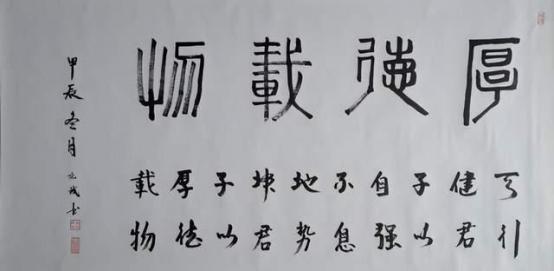 厚德載物
天行
健君
子以
自强
不息
地势
坤君
子以
厚德
載物
甲辰冬月书